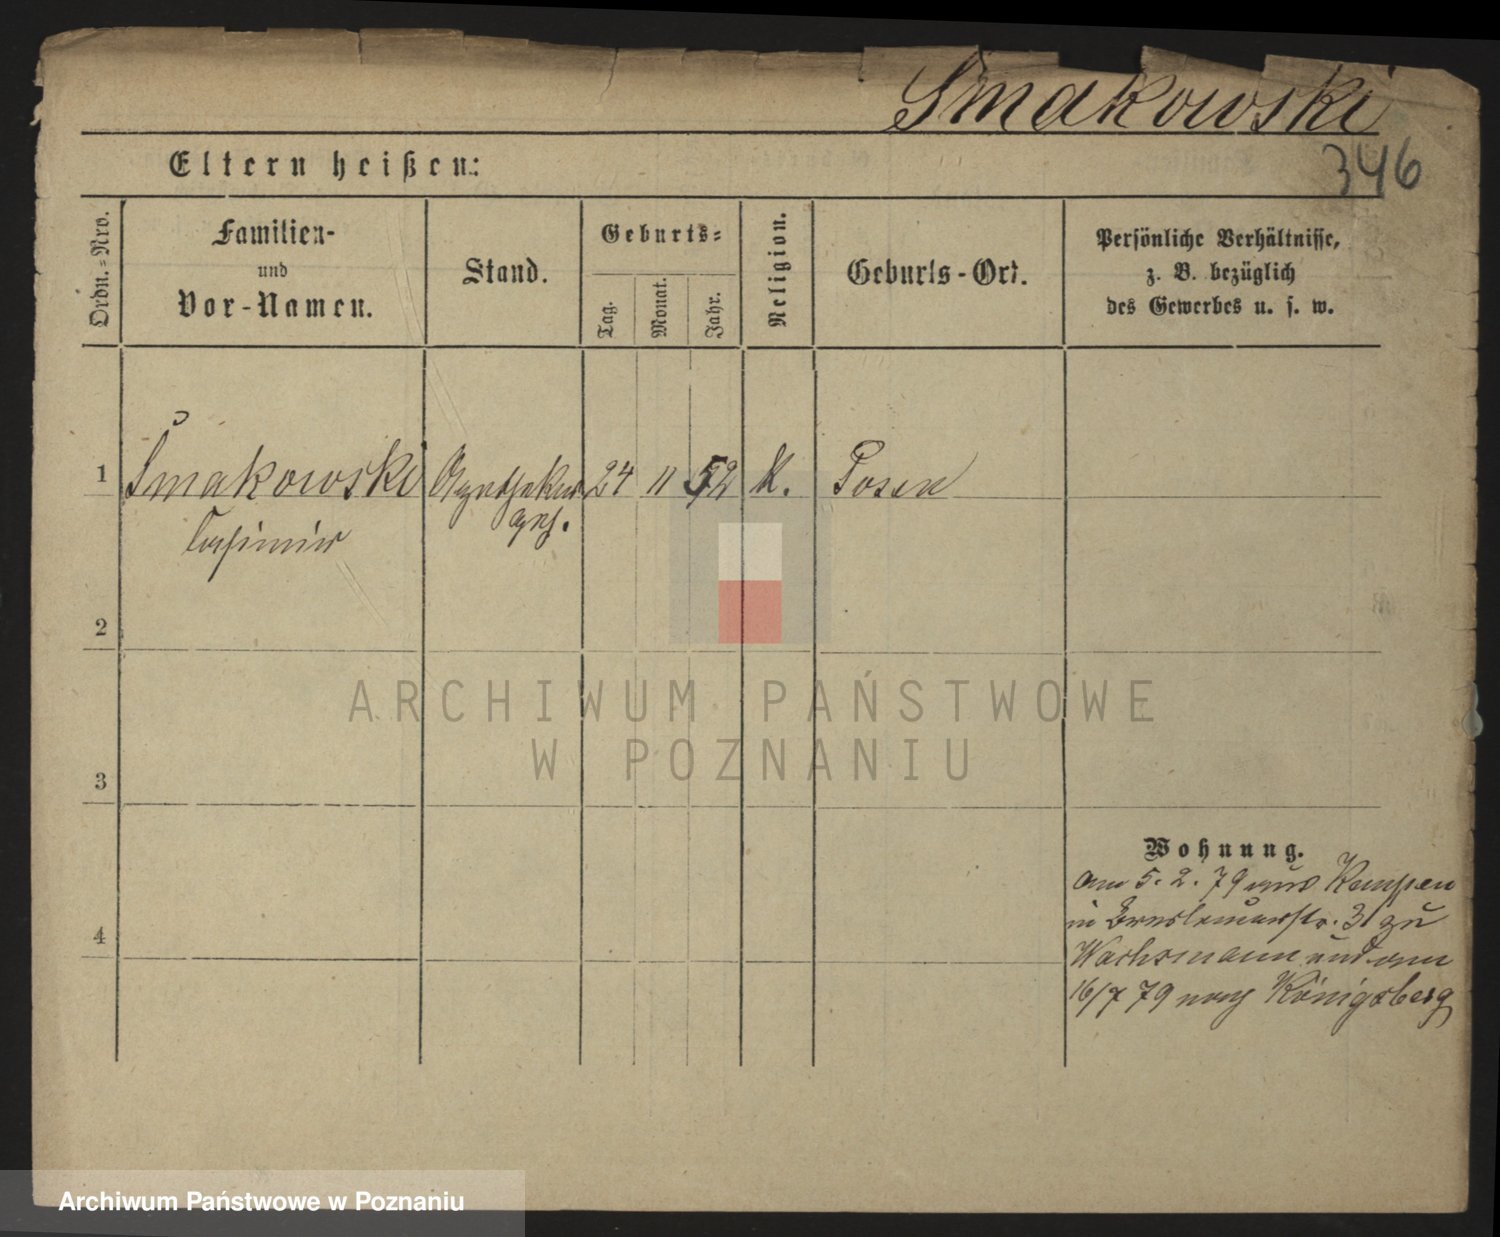 Smakowski
346
Eltern heißen:
Ordn.=Nro.
Familien-
und
Vor-Namen.
Stand.
Geburts=
Tag.
Monat.
Jahr.
Religion.
Geburts-Ort.
Persönliche Verhältnisse,
z. B. bezüglich
des Gewerbes u. s. w.
1 Smakowski Apotheker 24 11 52 K. Posen
Casimir geh.
2
3
4
Wohnung.
am 5. 2. 79 aus Kempen
in Breslauerstr. 31 zu
Wachsmann und am
16/7 79 nach Königsberg
ARCHIWUM PAŃSTWOWE
W POZNANIU
Archiwum Państwowe w Poznaniu